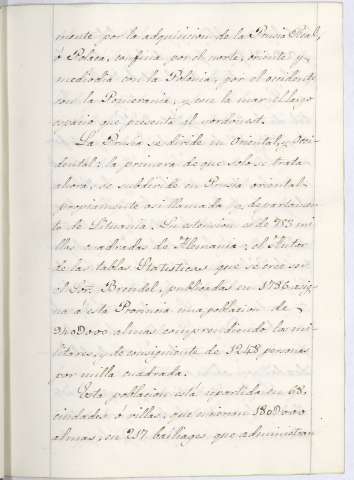 mente por la adquisicion de la Prusia Real,
ó Polaca, confina por el norte, oriente y
mediodia con la Polonia, por el occidente
con la Pomerania, y con la mar el largo
espacio que presenta al nordouest.
La Prusia se divide en Oriental, y Occi-
dental: la primera de que solo se trata
ahora, se subdivide en Prusia oriental
propiamente asi llamada y departamen-
to de Lituania. Su estension es de 753 mi-
llas cuadradas de Alemania; el Autor
de las tablas Statisticas que se cree ser
el Sor. Brendel, publicadas en 1786 asig-
na á esta Provincia una poblacion de
940.000 almas comprendiendo los mi-
litares, y de consiguiente de 1248 personas
por milla cuadrada.
Esta poblacion está repartida en 68
ciudades ó villas, que encierran 180.000
almas, en 217 bailiages que administran